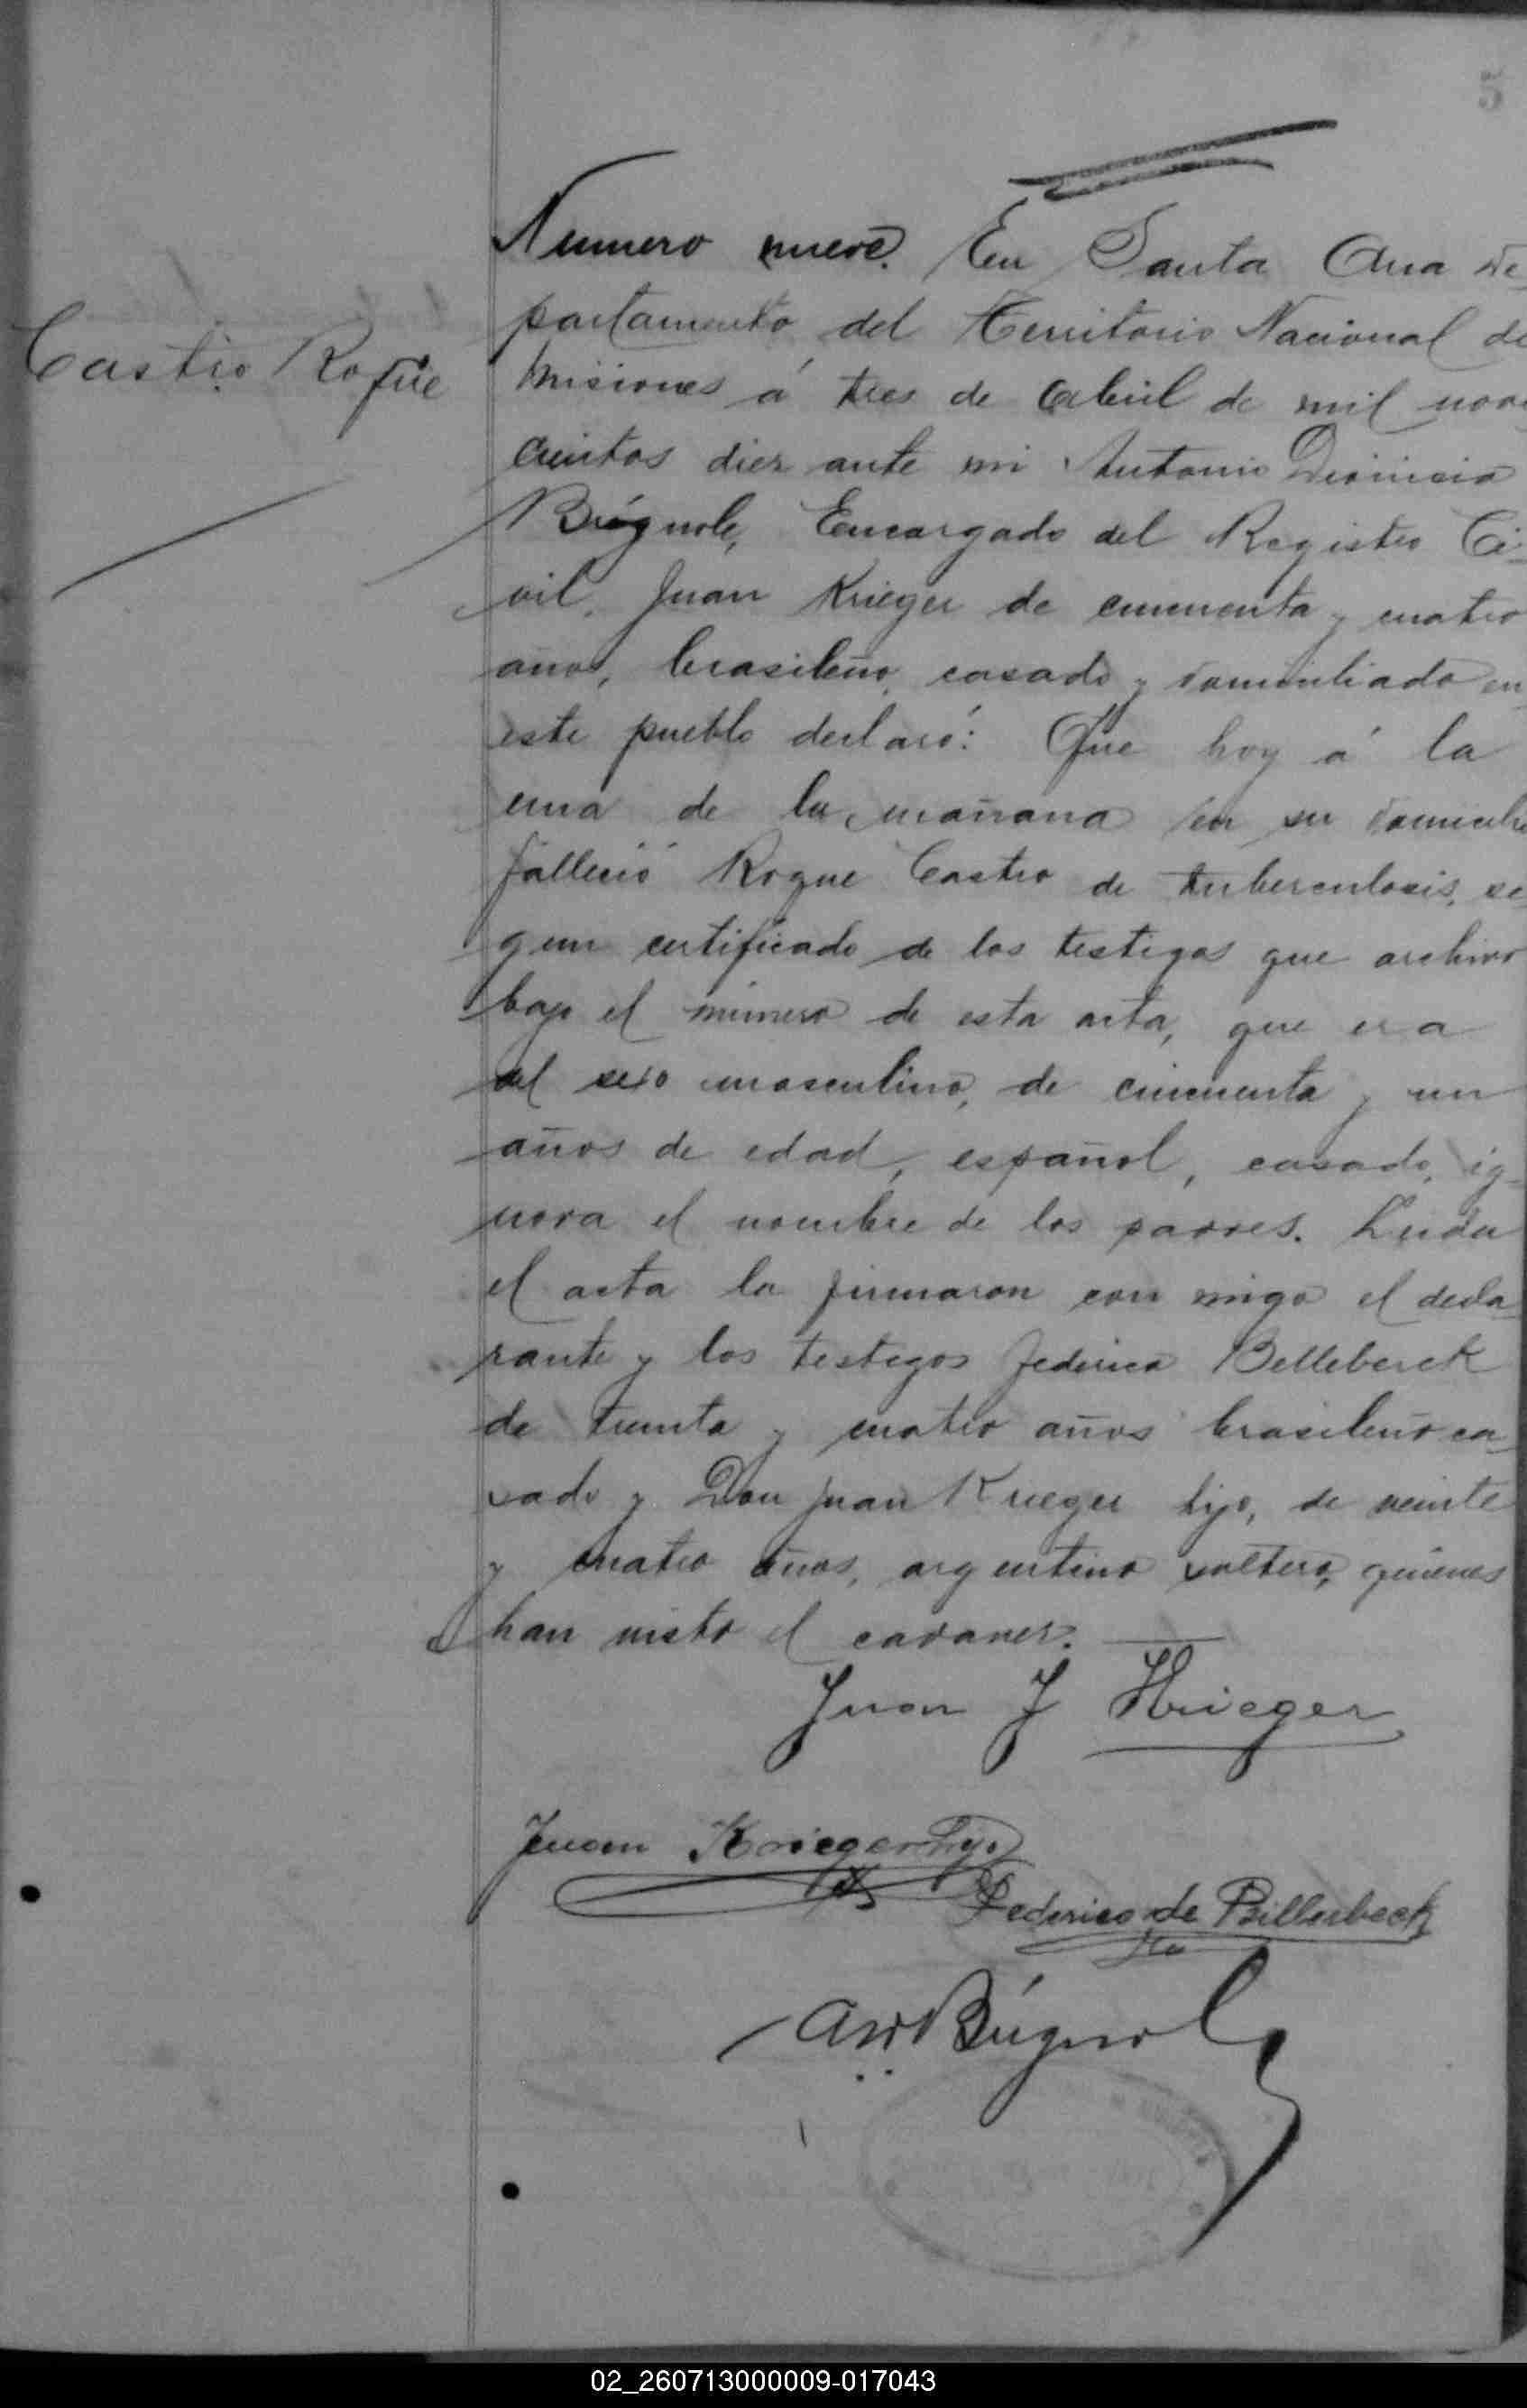 5
Numero nueve. En Santa Ana De-
partamento del Territorio Nacional de
Castro Roque
Misiones á tres de Abril de mil nove
cientos diez ante mi Antonio Dionicio
Búgnole, Encargado del Registro Ci-
vil, Juan Krieger de cincuenta y cuatro
años, brasileño, casado y domiciliado en
este pueblo declaró: Que hoy á la
una de la mañana en su domicilio
falleció Roque Castro de tuberculosis, se-
gun certificado de los testigos que archivo
bajo el número de esta acta, que era
del sexo masculino, de cincuenta y un
años de edad, español, casado, ig-
nora el nombre de los padres. Leida
el acta la firmaron con migo el decla-
rante y los testigos Federico Belleberck
de treinta y cuatro años brasileño ca-
sado y Don Juan Krieger hijo, de veinte
y cuatro años, argentino soltero, quienes
han visto el cadaver.
Juan J Krieger
Juan Krieger hijo
Federico de Billerbeck
02_260713000009-017043